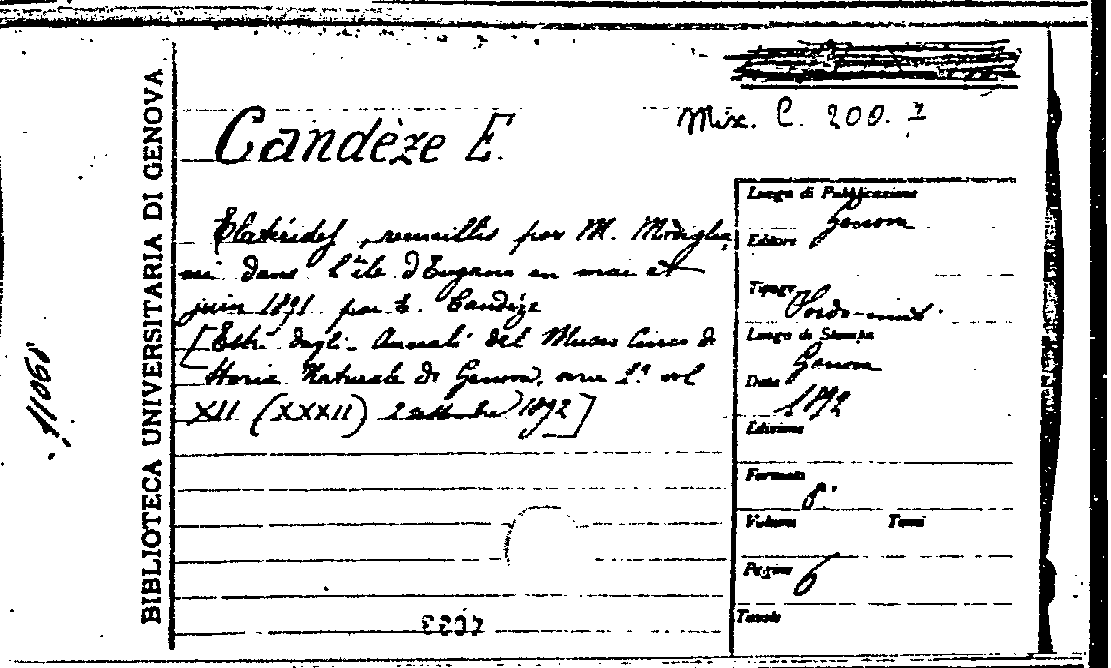 BIBLIOTECA UNIVERSITARIA DI GENOVA
11068
Misc. C. 200. 7
Candèze E.
Elatérides, recueillis par M. Modiglia
ni dans l'île d'Engano en mai et
juin 1891 par E. Candèze
[Estr. dagli Annali del Museo Civico di
Storia Naturale di Genova, serie 2ª vol
XII (XXXII) 2 settembre 1892]
Luogo di Pubblicazione
Genova
Editore
Tipogr.
Sordo-muti
Luogo di Stampa
Genova
Data
1892
Edizione
Formato
8°
Volumi Tomi
Pagine 6
Tavole